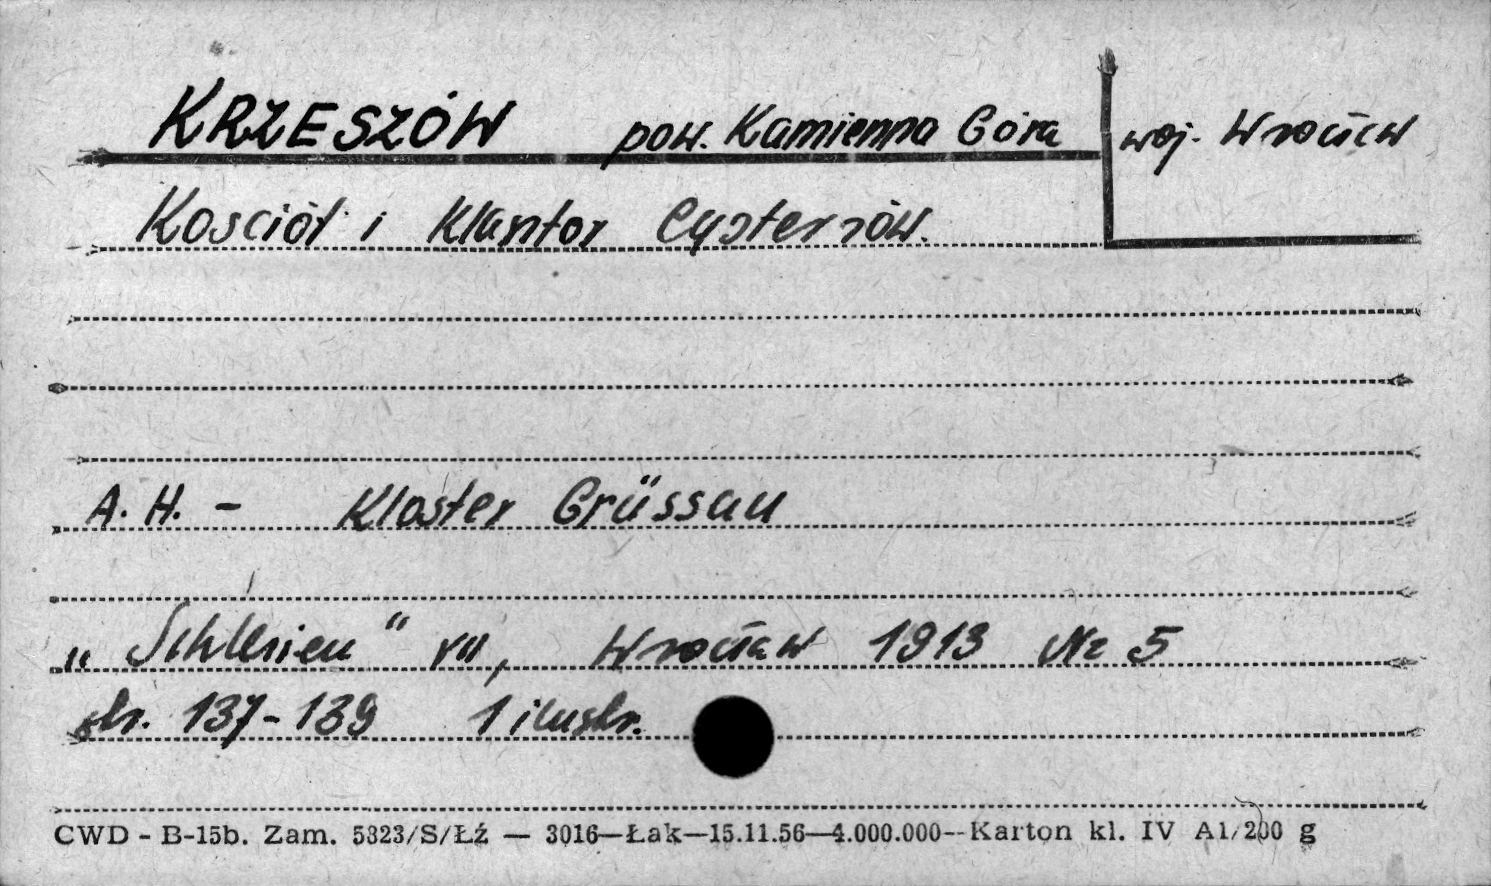 KRZESZÓW pow. Kamienna Góra woj. Wrocław
Kosciół i Klasztor Cystersów.
A. H. - Kloster Grüssau
„Schlesien" VII, Wrocław 1913 Nr 5
str. 137-139 1 ilustr.
CWD - B-15b. Zam. 5823/S/Łź — 3016—Łak—15.11.56—4.000.000--Karton kl. IV A1/200 g